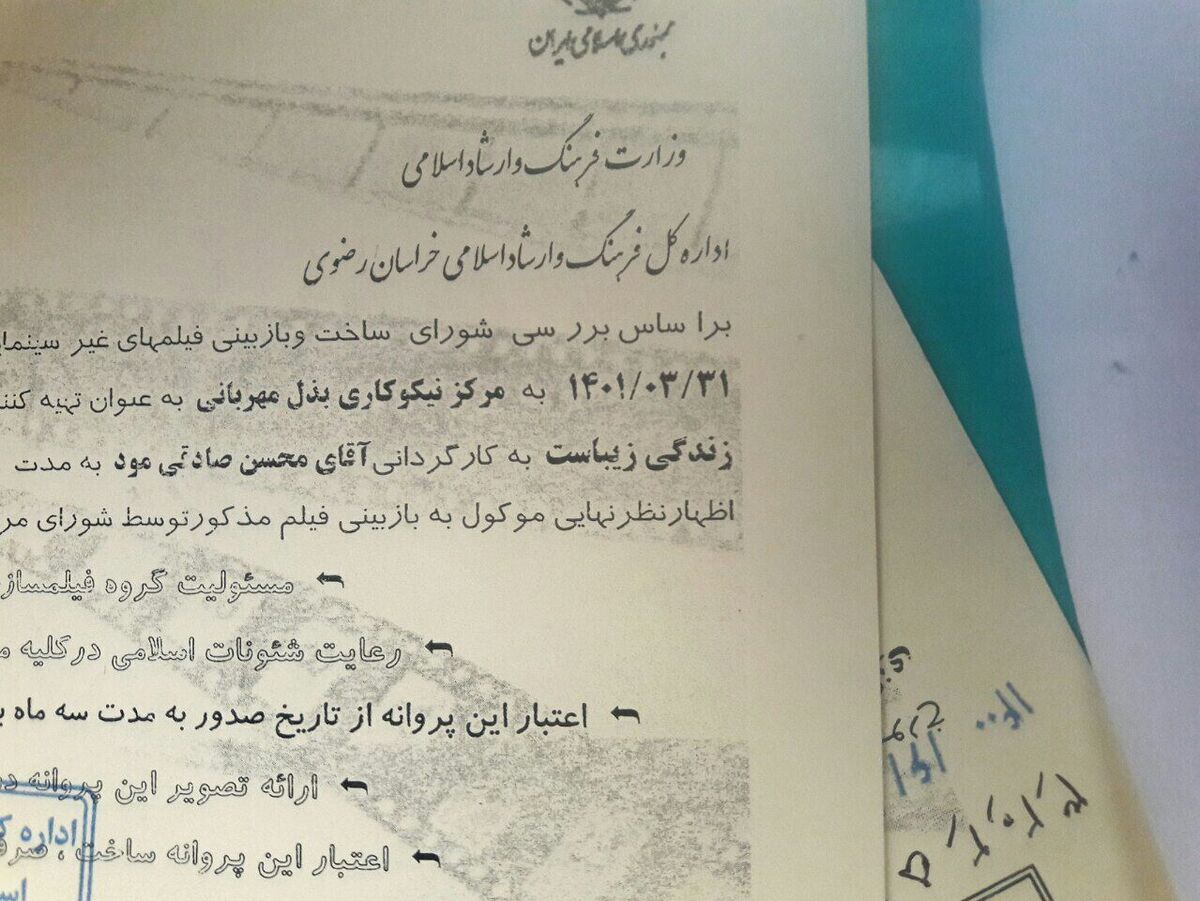 جمهوری اسلامی ایران
وزارت فرهنگ وارشاد اسلامی
اداره کل فرهنگ وارشاد اسلامی خراسان رضوی
برا ساس برر سی شورای ساخت وبازبینی فیلمهای غیر سینمای
۱۴۰۱/۰۳/۳۱ به مرکز نیکوکاری بذل مهربانی به عنوان تهیه کنن
زندگی زیباست به کارگردانی آقای محسن صادقی مود به مدت
اظهارنظرنهایی موکول به بازبینی فیلم مذکورتوسط شورای مر
مسئولیت گروه فیلمساز
رعایت شئونات اسلامی درکلیه م
اعتبار این پروانه از تاریخ صدور به مدت سه ماه ب
ارائه تصویر این پروانه در
اعتبار این پروانه ساخت ، صرف
اداره ک